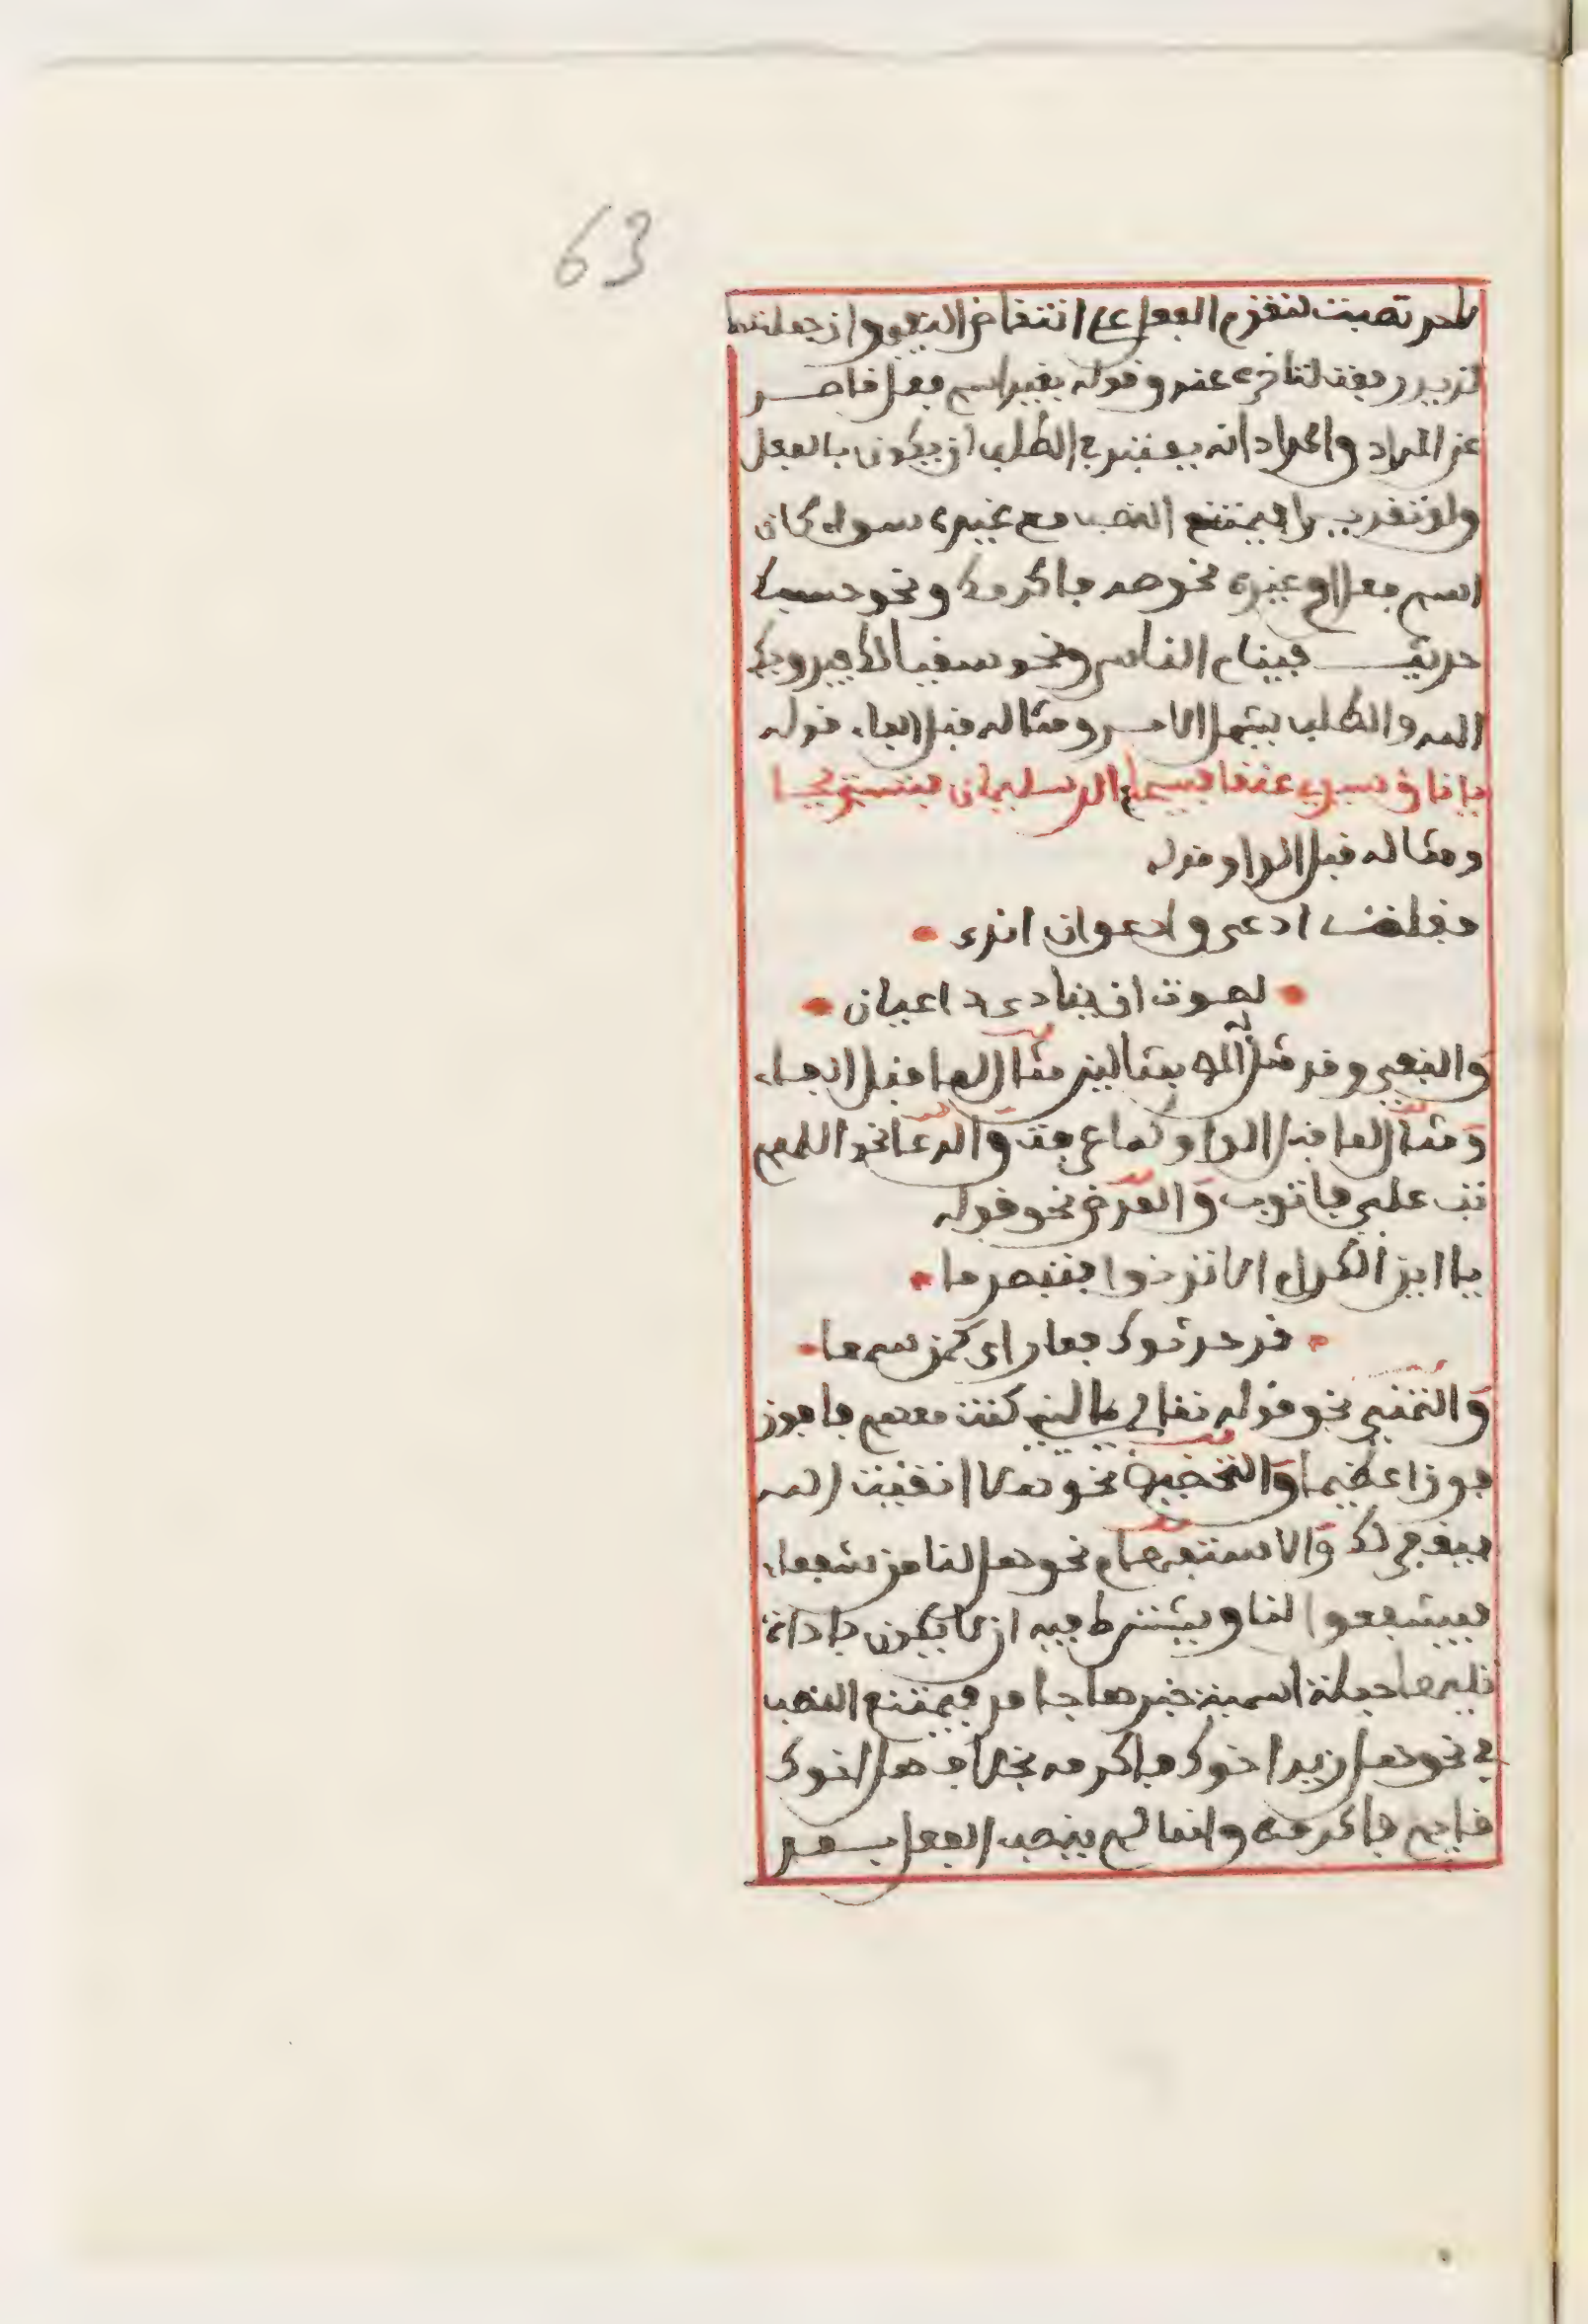 63
لاحد نصبت لتقدم الفعل على انتقاض النفي وان جعلتها
لزيد رفعت لتاخره عنه وقوله بغير اسم فعل قاصر
عن المراد والمراد انه يعتبر في الطلب ان يكون بالفعل
ولو تقديرا فيمتنع النصب مع غيره سواء كان
اسم فعل او غيره نحو صه فاكرمك ونحو حسبك
حديث فينام الناس ونحو سقيا لك فيرويك
الله والطلب يشمل الامر ومثاله قبل الفاء قوله
يا ناق سيري عنقا فسيحا الى سليمان فنستريحا
ومثاله قبل الواو قوله
فقلت ادعي وادعو ان اندى
لصوت ان ينادي داعيان
والنهي وقد مثل له بمثالين مثالها قبل الفاء
ومثالها قبل الواو كما عرفت والدعا نحو اللهم
تب علي فاتوب والعرض نحو قوله
يا ابن الكرام الا تدنوا فتبصر ما
قد حدثوك فما راى كمن سمعا
والتمني نحو قوله تعالى يا ليتني كنت معهم فافوز
فوزا عظيما والتحضيض نحو هلا اتقيت الله
فيغفر لك والاستفهام نحو فهل لنا من شفعاء
فيشفعوا لنا ويشترط فيه ان لا يكون باداة
تليها جملة اسمية خبرها جامد فيمتنع النصب
في نحو هل زيد اخوك فاكرمه بخلاف هل اخوك
قايم فاكرمه وانما لم ينصب الفعل بعد